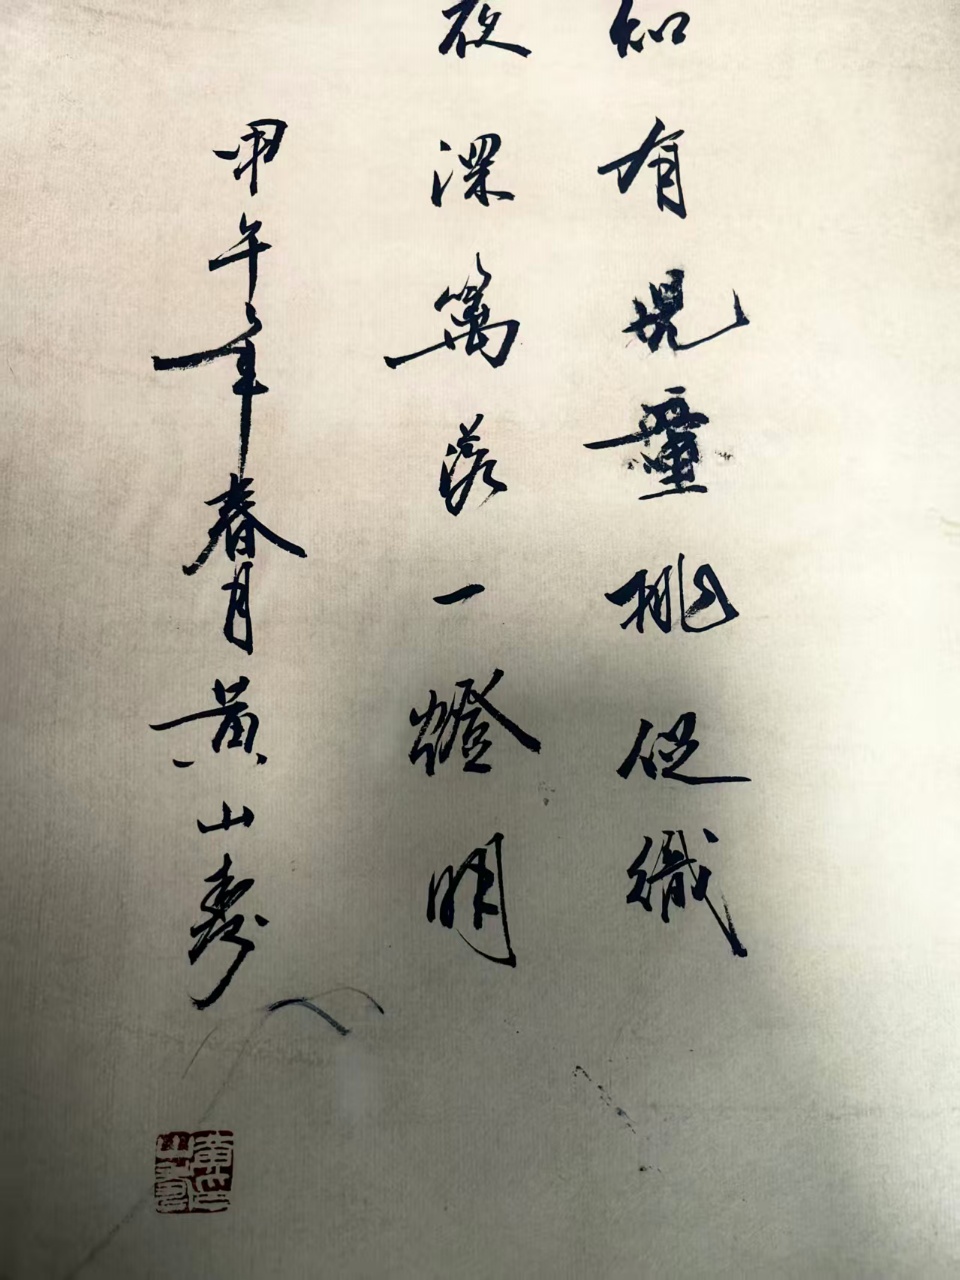 知有兒童挑促織
夜深篱落一燈明
甲午年春月黃山壽
黃山壽印